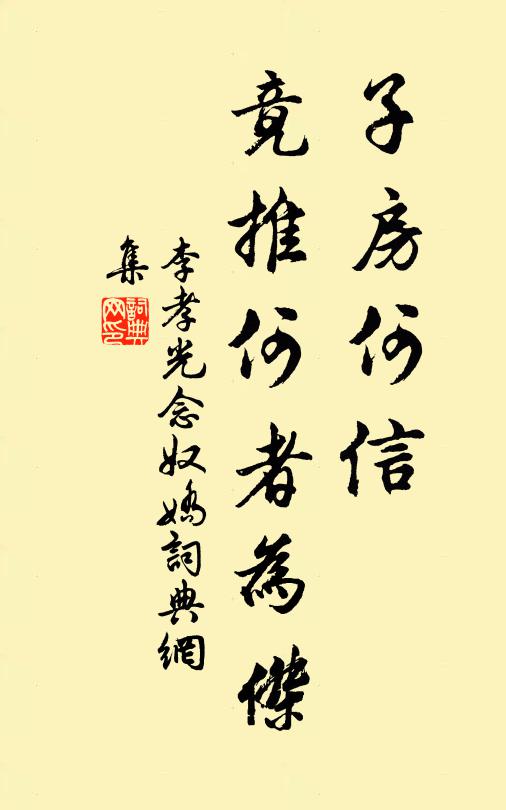 子房何信
竟推何者為傑
李孝光念奴嬌詞典網
集
詞典網印